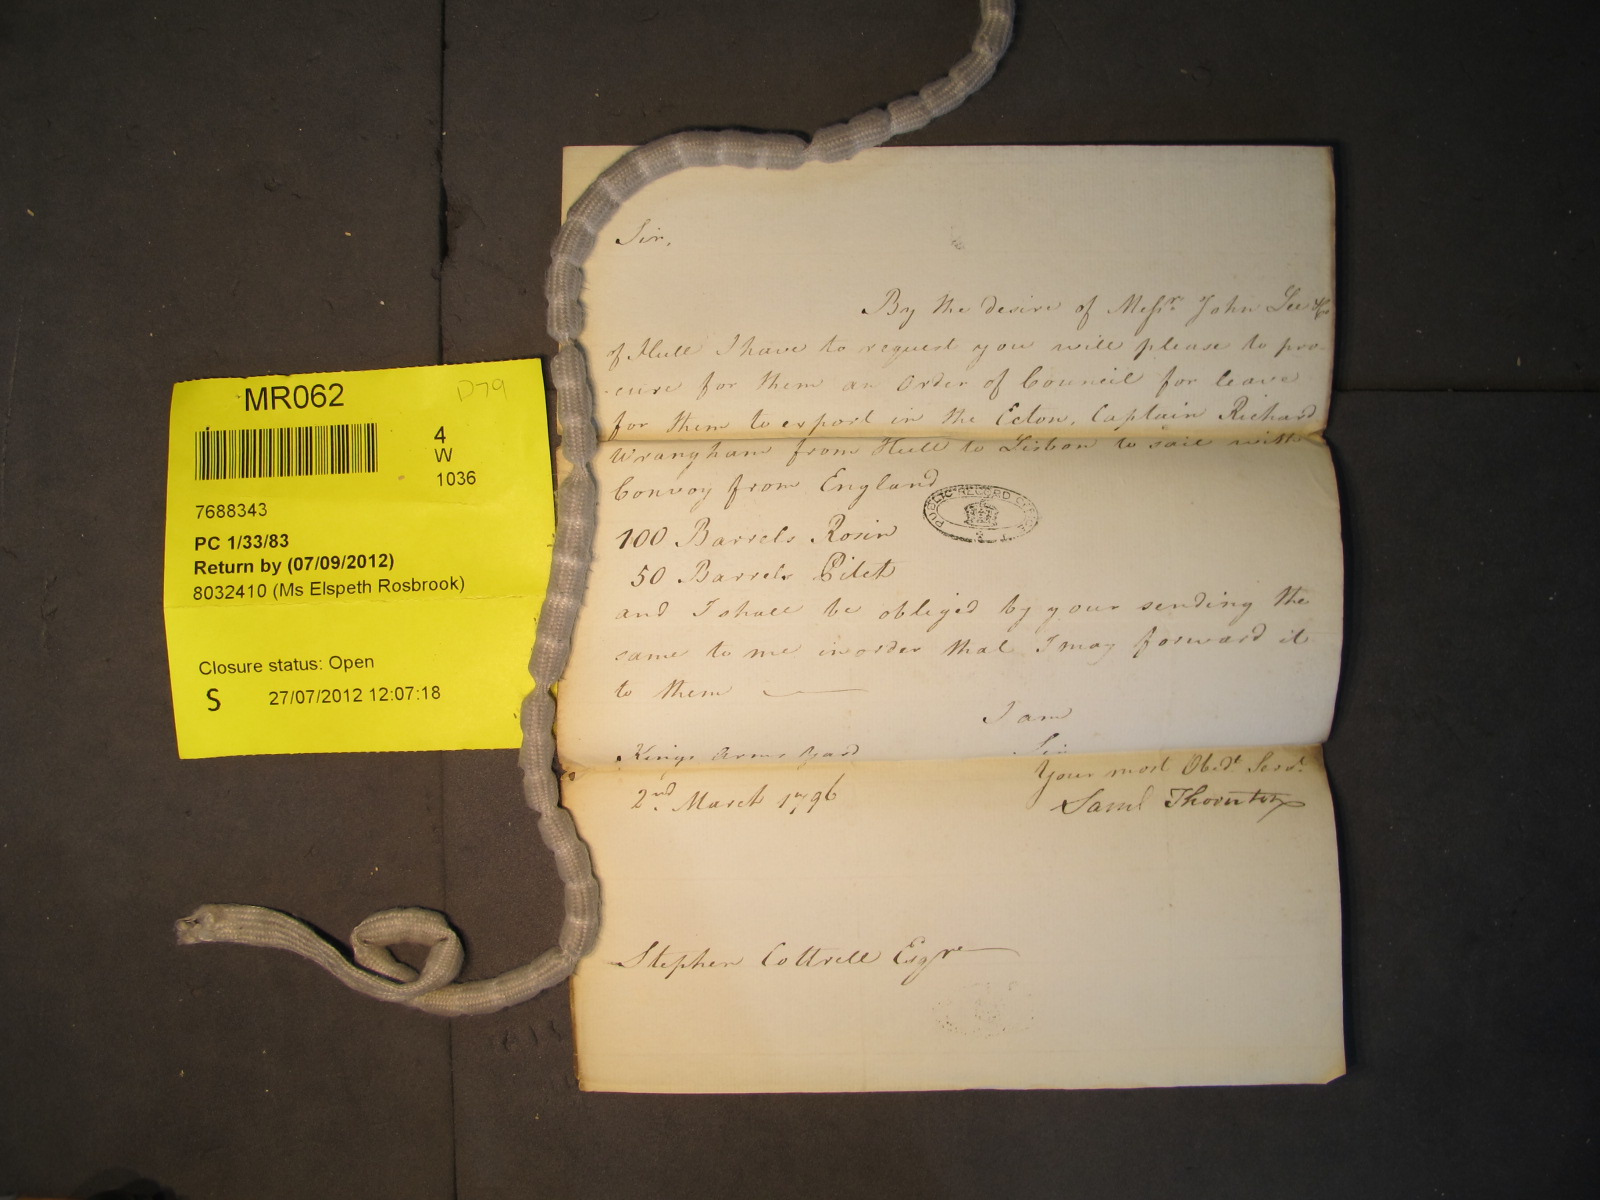 MR062
D79
4
W
1036
7688343
PC 1/33/83
Return by (07/09/2012)
8032410 (Ms Elspeth Rosbrook)
Closure status: Open
S 27/07/2012 12:07:18
Sir,
By the desire of Messrs John Lee & Co
of Hull I have to request you will please to pro-
-cure for them an Order of Council for leave
for them to export in the Ecton, Captain Richard
Wrangham from Hull to Lisbon to sail with
Convoy from England
100 Barrels Rosin
50 Barrels Pitch
and I shall be obliged by your sending the
same to me in order that I may forward it
to them
I am
Sir
Kings Arms Yard
Your most Obedt Servt
2nd March 1796
Saml Thornton
Stephen Cottrell Esqre
PUBLIC RECORD OFFICE